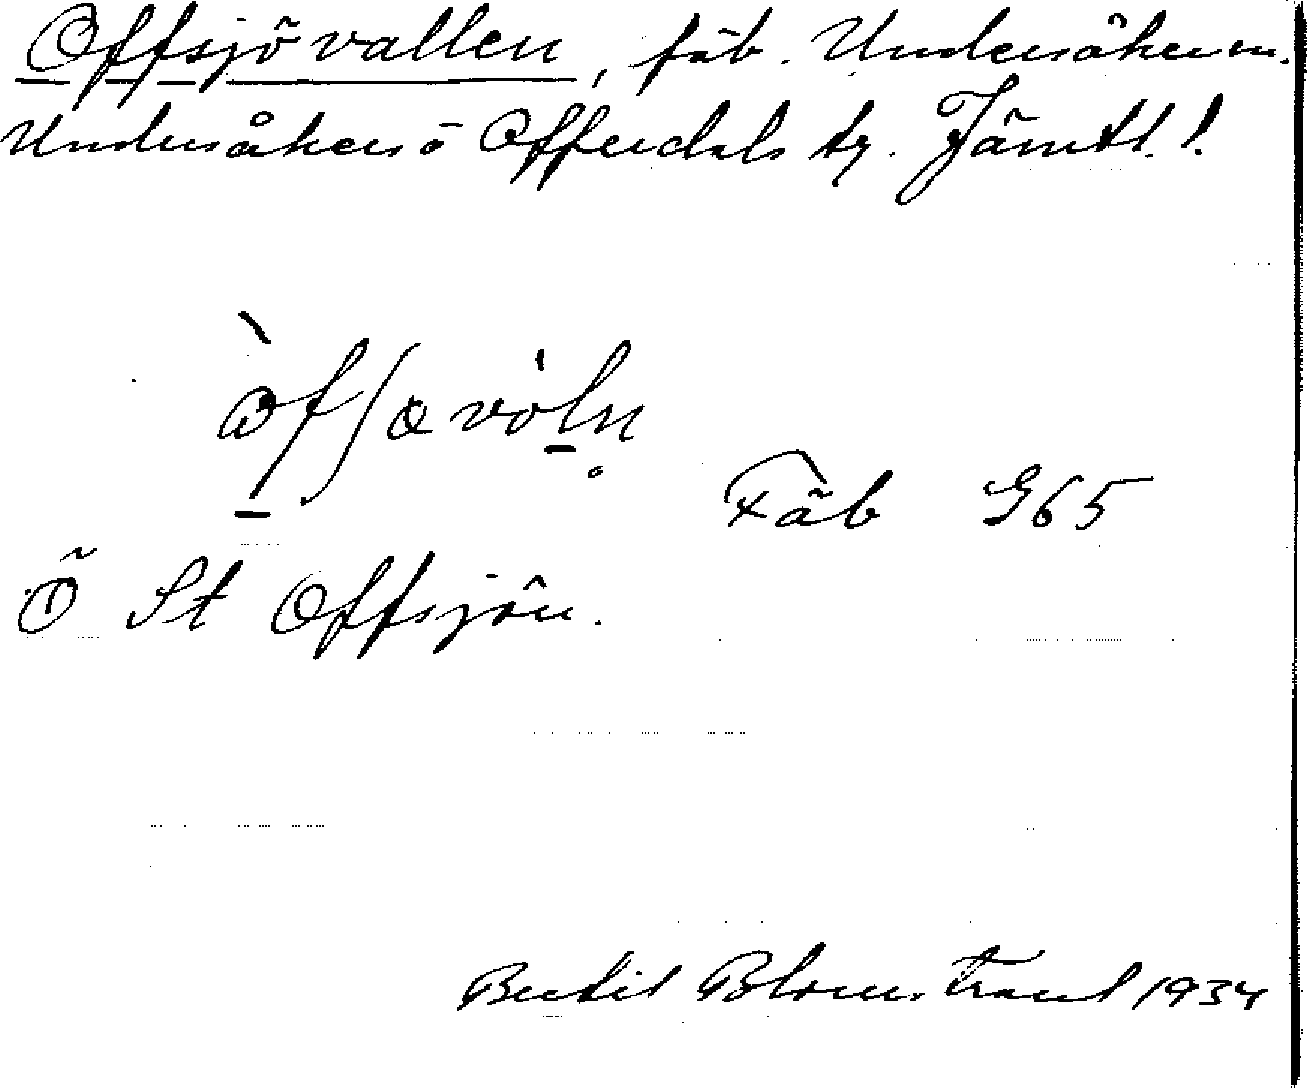 Offsjövallen, fäb. Undersåkers sn.
Undersåkers o Offerdals tg. Jämtl.
Fäb G65
Ö St Offsjön.
Bertil Blomstrand 1934